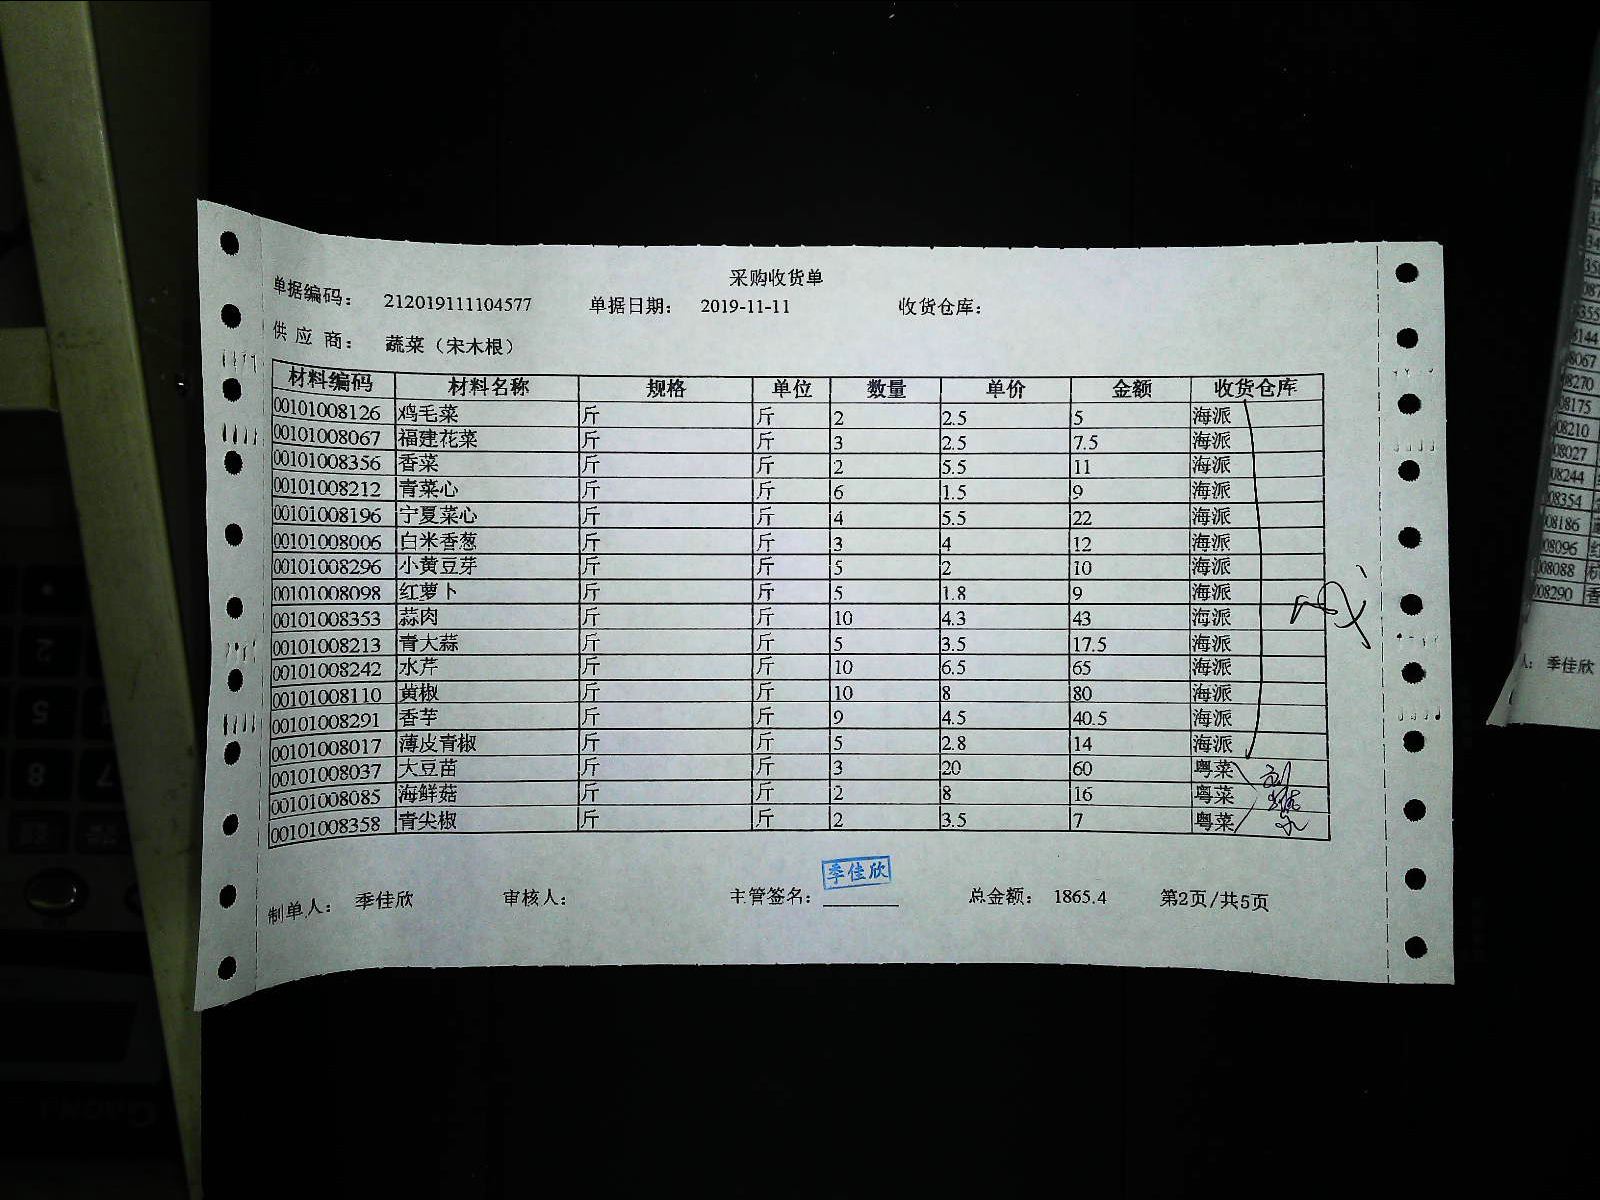 采购收货单
单据编码： 212019111104577 单据日期： 2019-11-11 收货仓库：
供 应 商： 蔬菜（宋木根）
材料编码 材料名称 规格 单位 数量 单价 金额 收货仓库
00101008126 鸡毛菜 斤 斤 2 2.5 5 海派
00101008067 福建花菜 斤 斤 3 2.5 7.5 海派
00101008356 香菜 斤 斤 2 5.5 11 海派
00101008212 青菜心 斤 斤 6 1.5 9 海派
00101008196 宁夏菜心 斤 斤 4 5.5 22 海派
00101008006 白米香葱 斤 斤 3 4 12 海派
00101008296 小黄豆芽 斤 斤 5 2 10 海派
00101008098 红萝卜 斤 斤 5 1.8 9 海派
00101008353 蒜肉 斤 斤 10 4.3 43 海派
00101008213 青大蒜 斤 斤 5 3.5 17.5 海派
00101008242 水芹 斤 斤 10 6.5 65 海派
00101008110 黄椒 斤 斤 10 8 80 海派
00101008291 香芋 斤 斤 9 4.5 40.5 海派
00101008017 薄皮青椒 斤 斤 5 2.8 14 海派
00101008037 大豆苗 斤 斤 3 20 60 粤菜
00101008085 海鲜菇 斤 斤 2 8 16 粤菜
00101008358 青尖椒 斤 斤 2 3.5 7 粤菜
季佳欣
制单人： 季佳欣 审核人： 主管签名： 总金额： 1865.4 第2页/共5页
8144
8067
8270
8175
08210
08027
08244
08354
08186
08096
08088
008290 香
人： 季佳欣